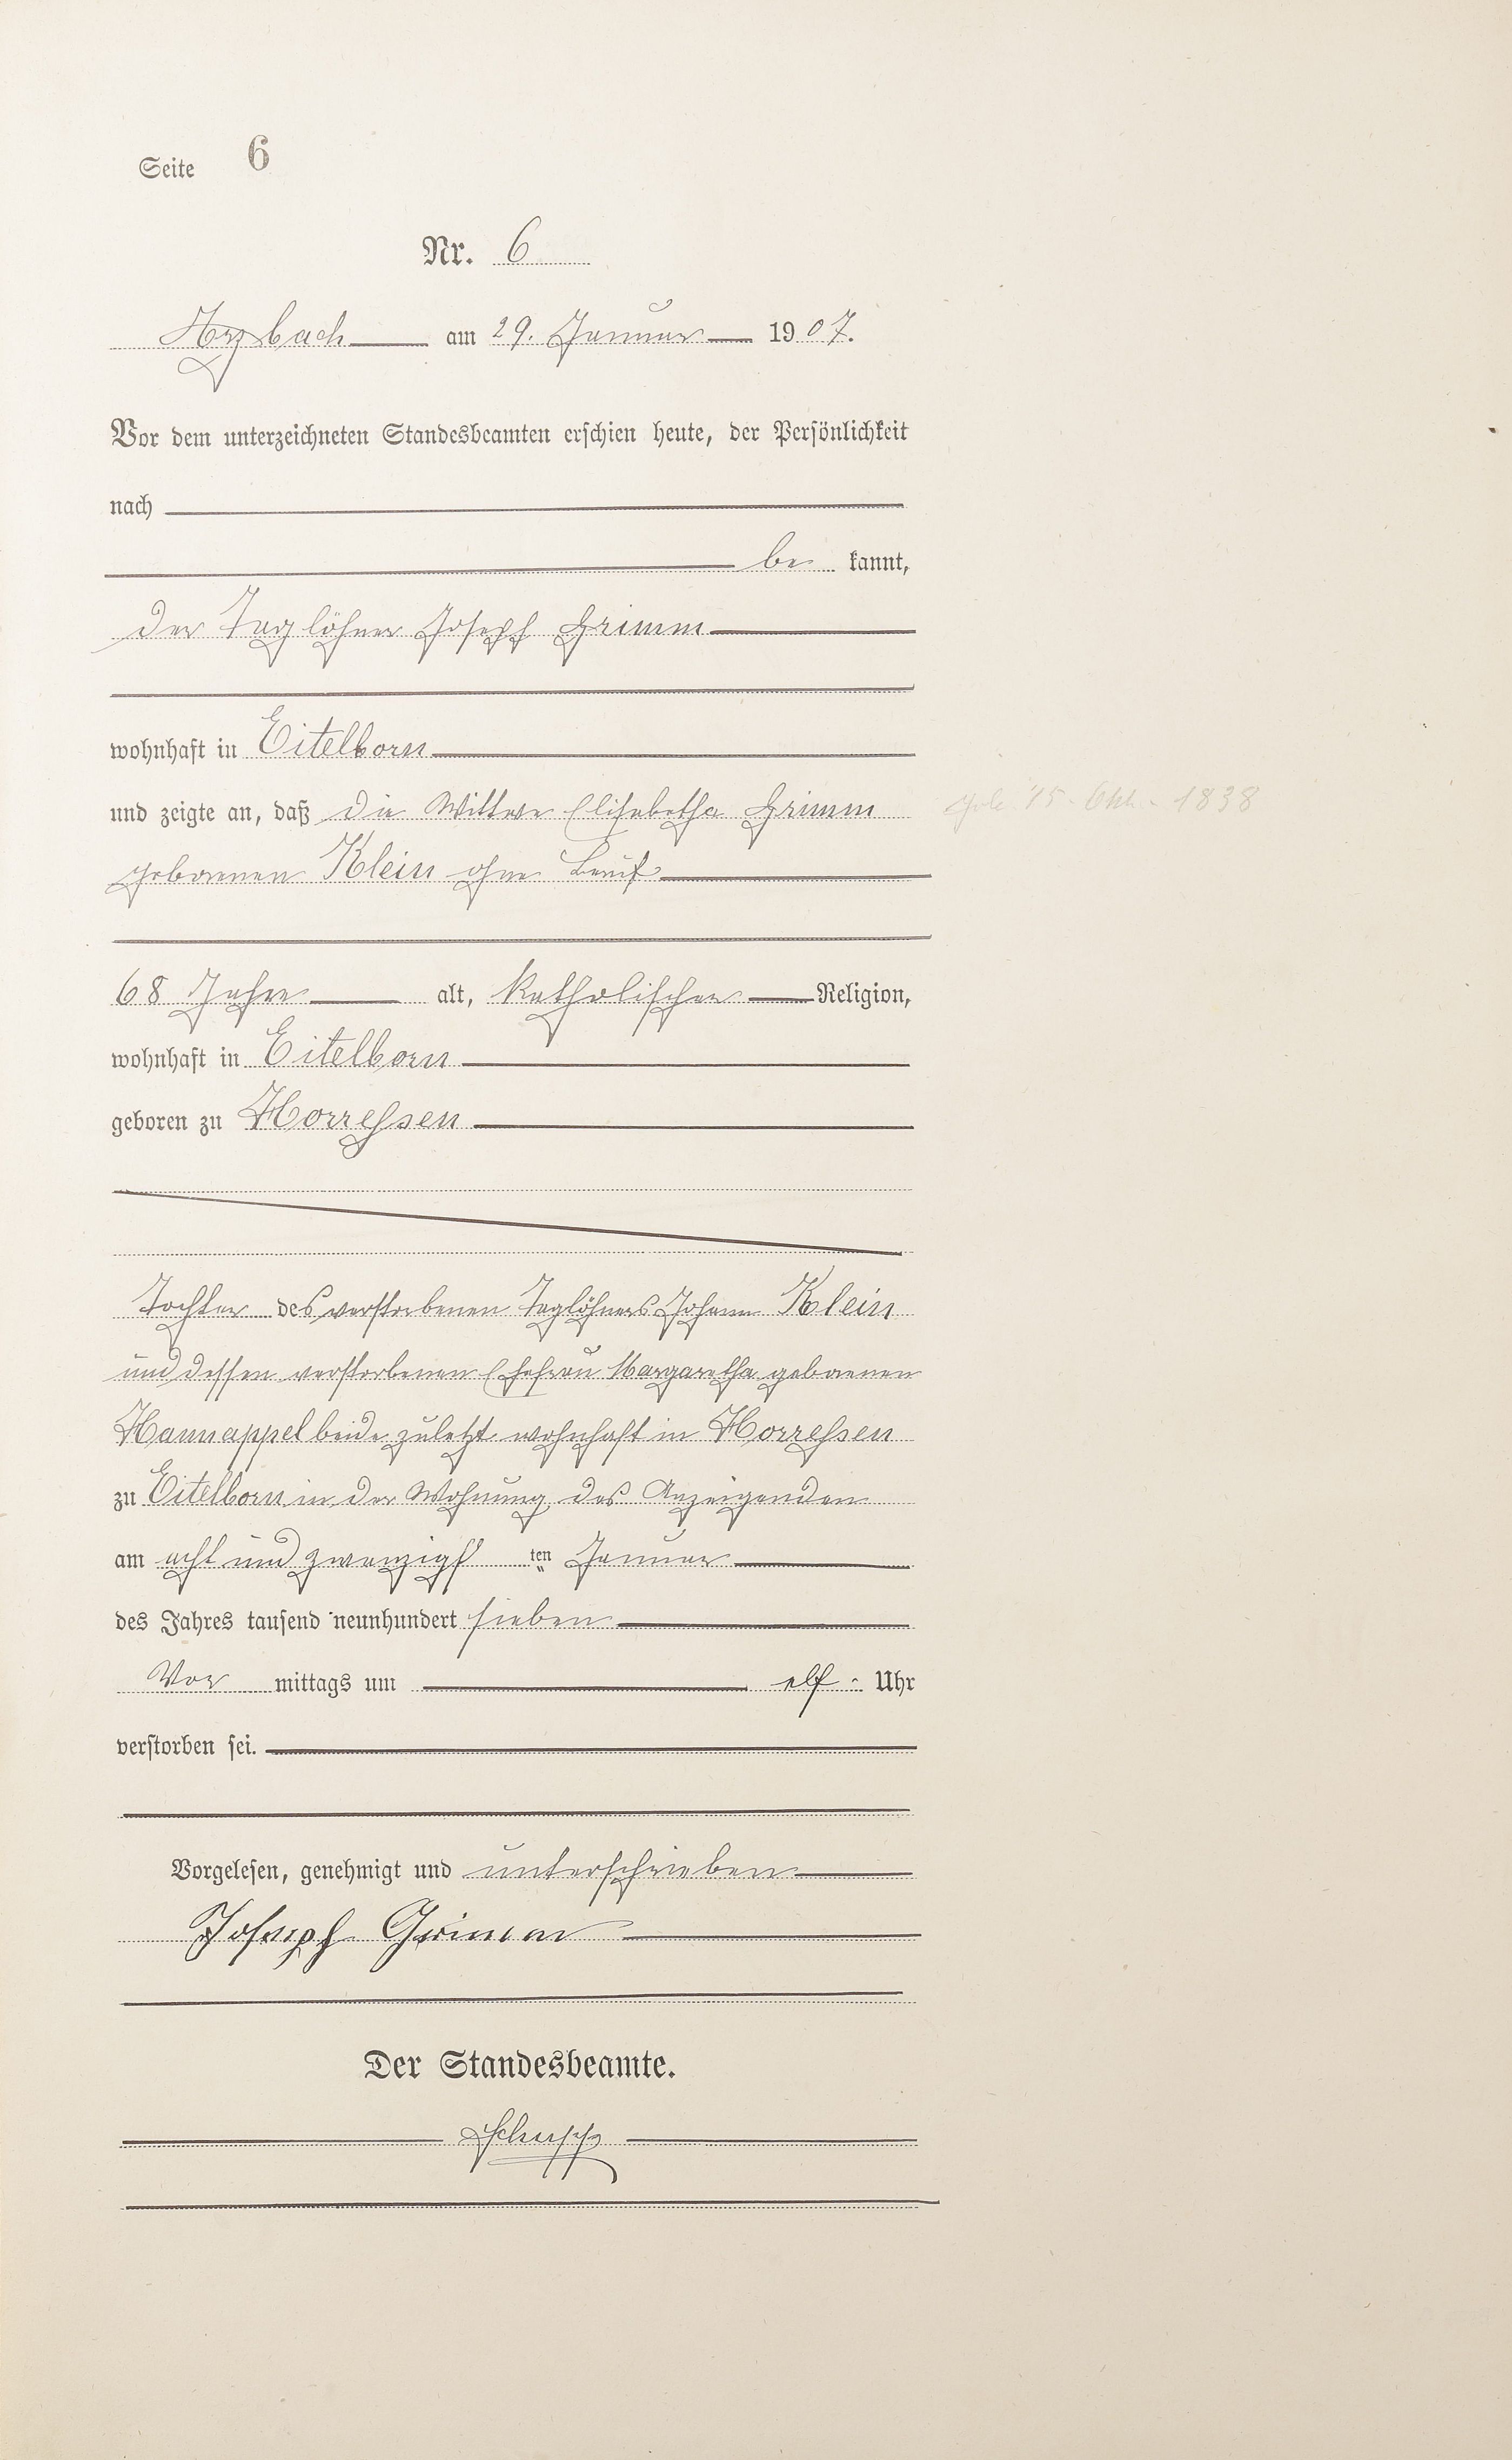 Seite 6
Nr. 6
Arzbach am 29. Januar 1907.
Vor dem unterzeichneten Standesbeamten erschien heute, der Persönlichkeit
nach
be kannt,
der Taglöhner Joseph Grimm
wohnhaft in Eitelborn
und zeigte an, daß die Wittwe Elisabetha Grimm
geb. 15. Okt. 1838
geborenen Klein ohne Beruf
68 Jahre alt, katholischer Religion,
wohnhaft in Eitelborn
geboren zu Horressen
Tochter des verstorbenen Taglöhners Johann Klein
und dessen verstorbenen Ehefrau Margaretha geborenen
Hannappel beide zuletzt wohnhaft in Horressen
zu Eitelborn in der Wohnung des Anzeigenden
am acht und zwanzigst ten Januar
des Jahres tausend neunhundert sieben
Vor mittags um elf Uhr
verstorben sei.
Vorgelesen, genehmigt und unterschrieben
Joseph Grimm
Der Standesbeamte.
Schupp